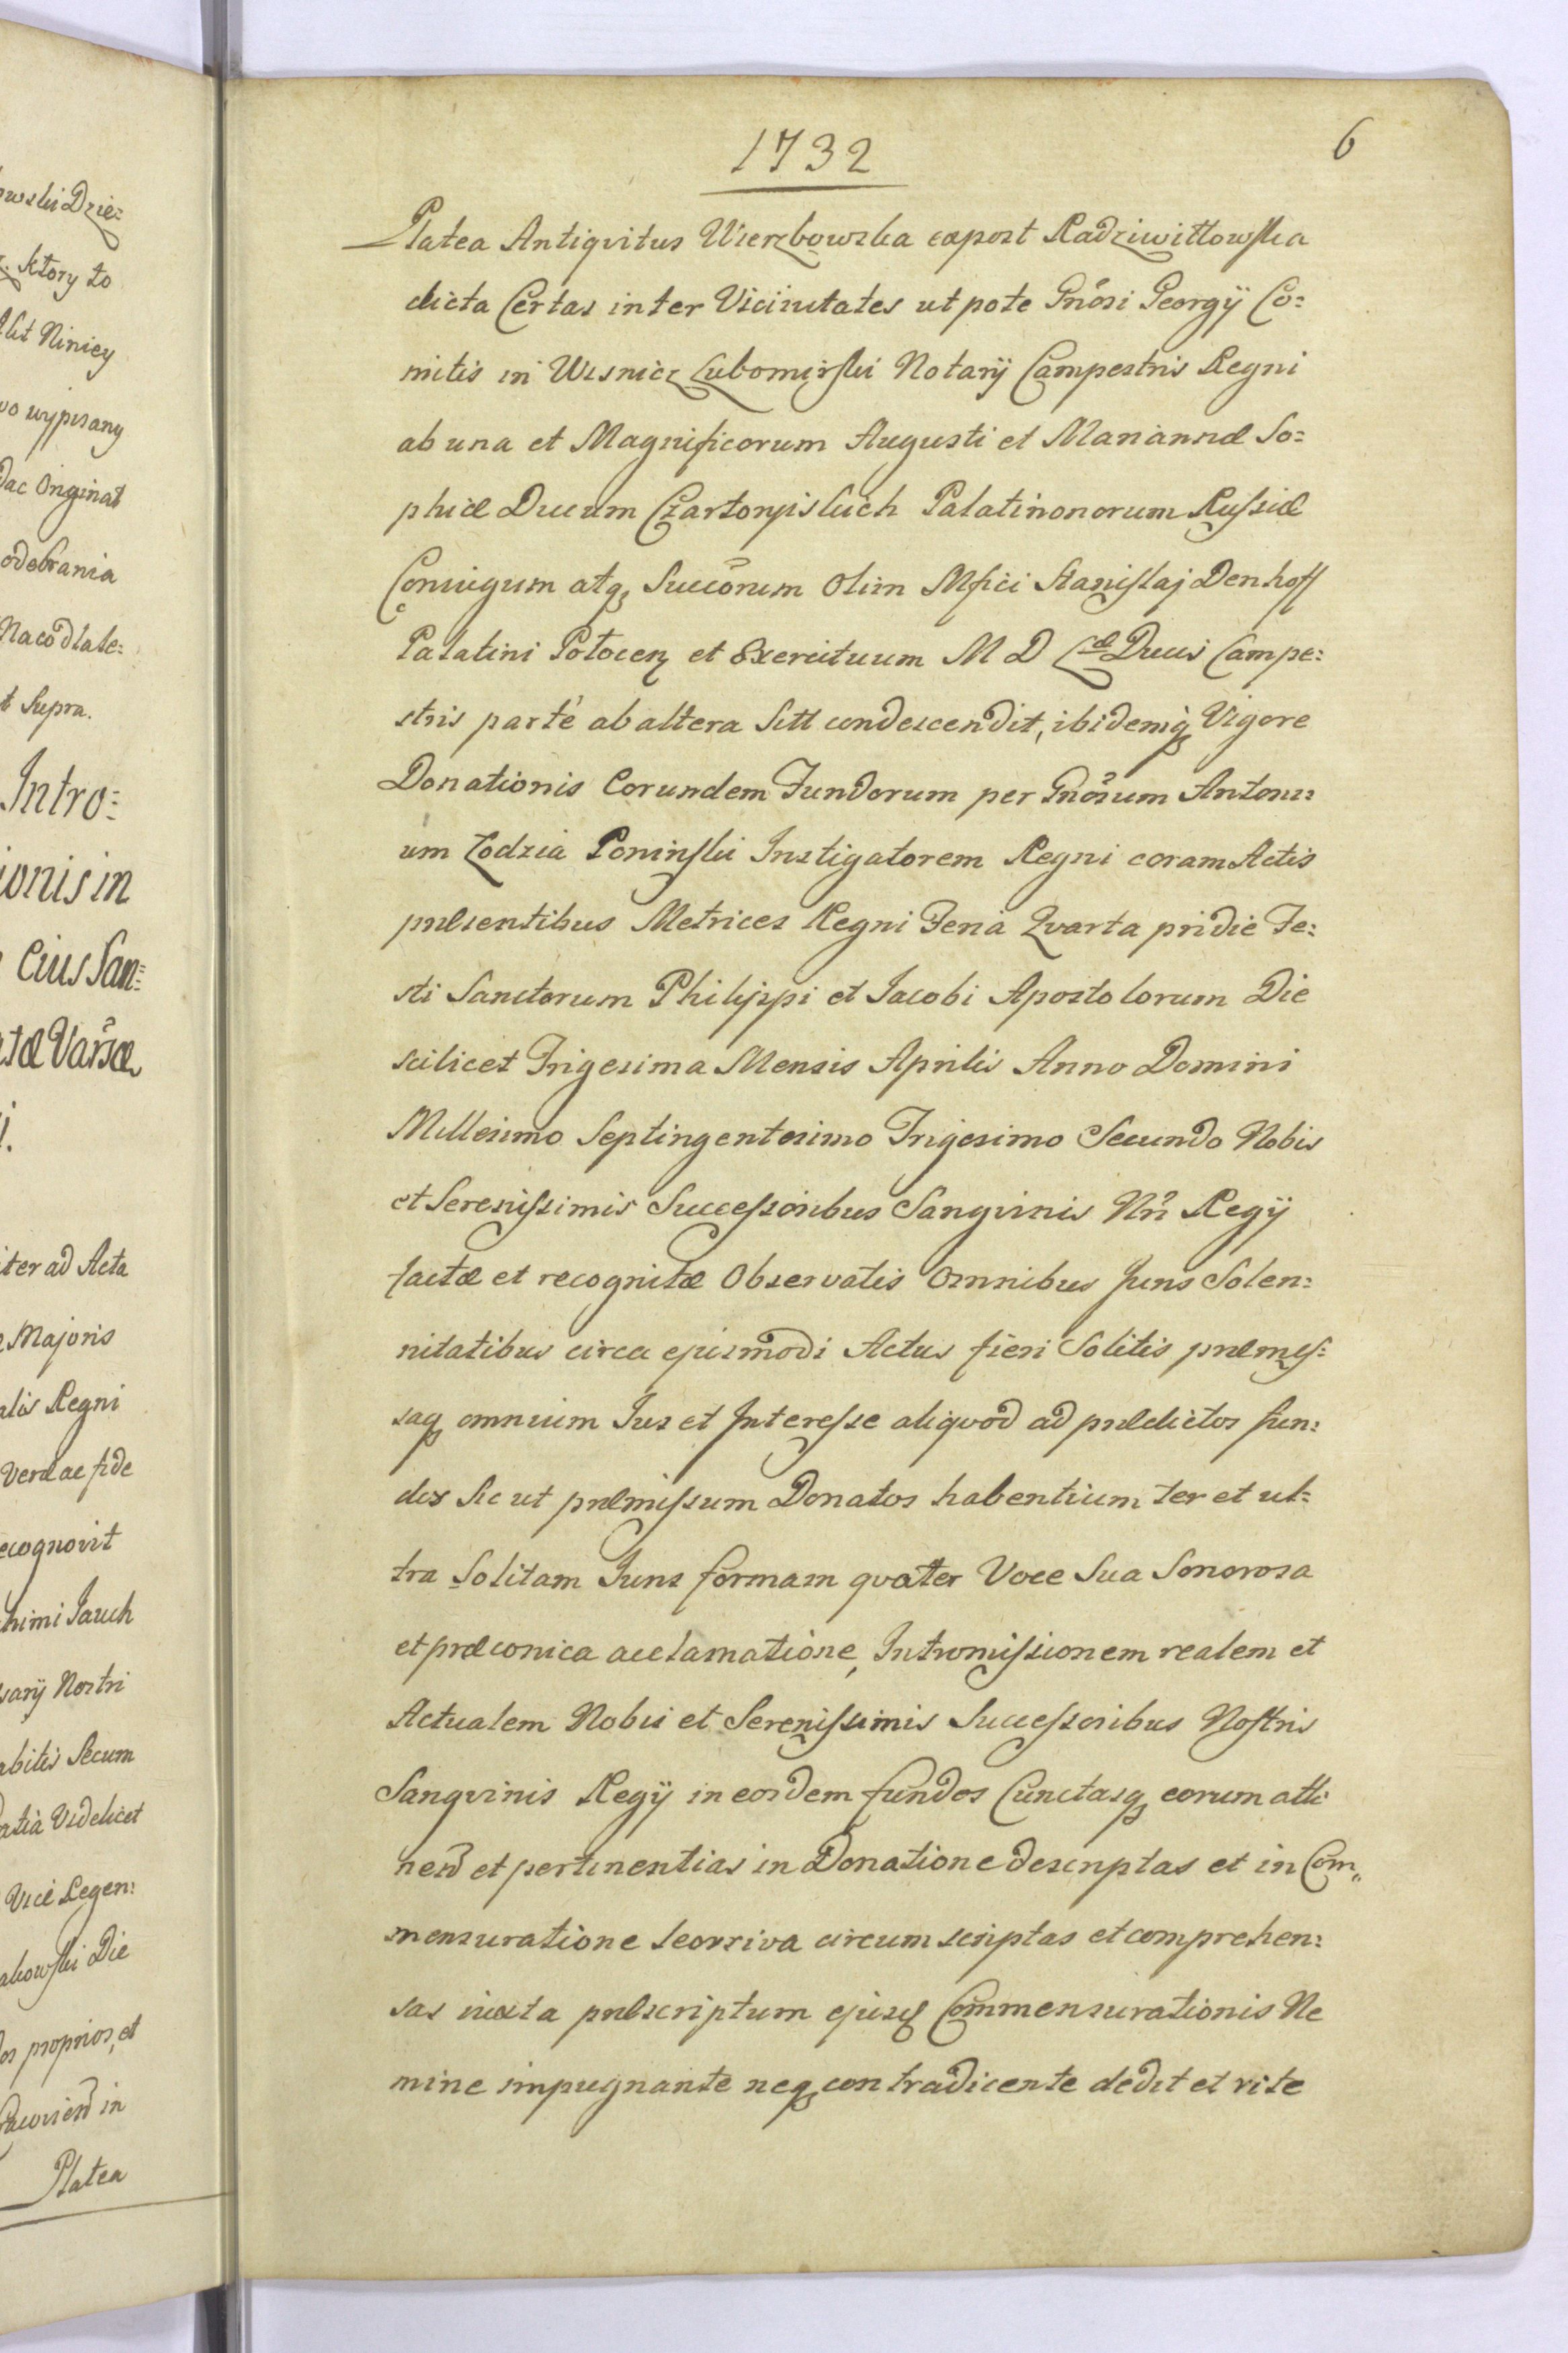 1732
6
Platea Antiqvitus Wierzbowska expost Radziwiłłowska
dicta Certas inter Vicinitates utpote Gnosi Georgij Co=
mitis in Wisnicz Lubomirski Notarij Campestris Regni
ab una et Magnificorum Augusti et Mariannæ So=
phiæ Ducum Czartoryiskich Palatinonorum Russiæ
Coniugum atq, Succorum Olim Mfici Stanislaj Denhoff
Palatini Połocen et Exercituum M D L Ducis Campe=
stris parte ab altera Sitt condescendit, ibidemq Vigore
Donationis Eorundem Fundorum per Gnosum Antoni=
um Łodzia Poninski Instigatorem Regni coram Actis
præsentibus Metrices Regni Feria Qvarta pridie Fe=
sti Sanctorum Philippi et Jacobi Apostolorum Die
scilicet Trigesima Mensis Aprilis Anno Domini
Millesimo Septingentesimo Trigesimo Secundo Nobis
et Serenissimis Successoribus Sangvinis Nri Regij
factæ et recognitæ Observatis Omnibus Juris Solen=
nitatibus circa ejusmodi Actus fieri Solitis præmis=
saq omnium Jus et Interesse aliqvod ad prædictos fun=
dos Sic ut præmissum Donatos habentium ter et ul=
tra Solitam Juris formam qvater Voce Sua Sonorosa
et præconica acclamatione, Intromissionem realem et
Actualem Nobis et Serenissimis Successoribus Nostris
Sangvinis Regij in eosdem fundos Cunctasq eorum atti
nend et pertinentias in Donatione descriptas et in Com„
mensuratione seorsiva circumscriptas et comprehen=
sas iuxta præscriptum ejusq Commensurationis Ne
mine impugnante neq contradicente dedit et rite